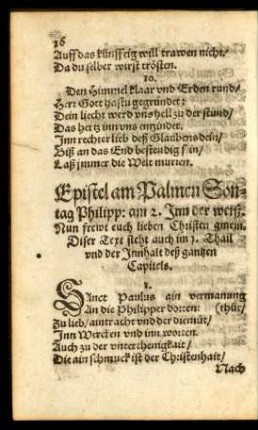 16
Auff das künfftig will trawen nicht/
Da du selber wirst trösten.
10.
Den Himmel klaar vnd Erden rund/
Herr Gott hastu gegründet:
Dein liecht werd vns hell zu der stund/
Das hertz inn vns entzündet.
Inn rechter lieb deß Glaubens dein/
Biß an das End bestendig sein/
Laß jmmer die Welt murren.
Epistel am Palmen Son-
tag Philipp: am 2. Inn der weiß.
Nun frewt euch lieben Christen gmein.
Diser Text steht auch im 1. Thail
vnd der Innhalt deß gantzen
Capitels.
1.
Sanct Paulus ain vermanung
An die Philipper dorten: (thut/
Zu lieb/ aintracht vnd der diemüt/
Inn Wercken vnd inn worten.
Auch zu der vnterthenigkait/
Die ain schmuck ist der Christenhait/
Nach